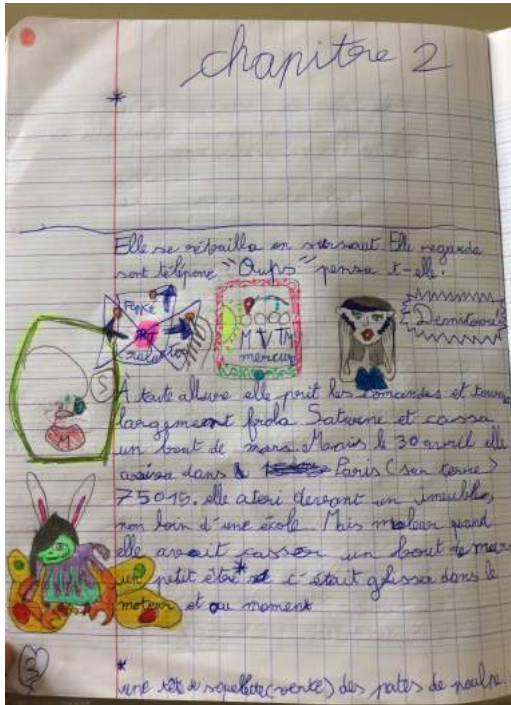 chapitre 2
*
Elle se rébailla en sursaut. Elle regarda
sont télépone "Oups" pensa t-elle.
MVTM
mercure
A toute allure elle prit les comandes et tourna
largement frola Saturne et cassa
un bout de mars. Mardis le 30 avril elle
dans Paris (sur terre)
75015. elle ateri devant un imeuble,
non loin d'une école. Mais maleur quand
elle avait casser un bout de mars
un petit être* c'était glissa dans le
moteur et au moment
*
une tête de squelette (verte) des pates de poulpe.